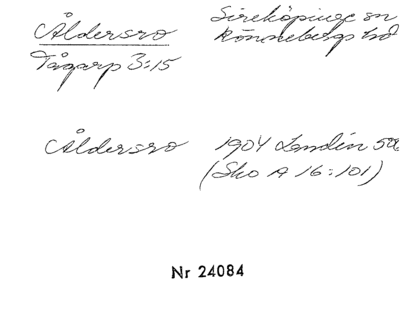 Åldersro Sireköpinge sn
Tågarp 3:15 Rönnebergs hd
Åldersro 1904 Landin 500
(Sko A 16:101)
Nr 24084